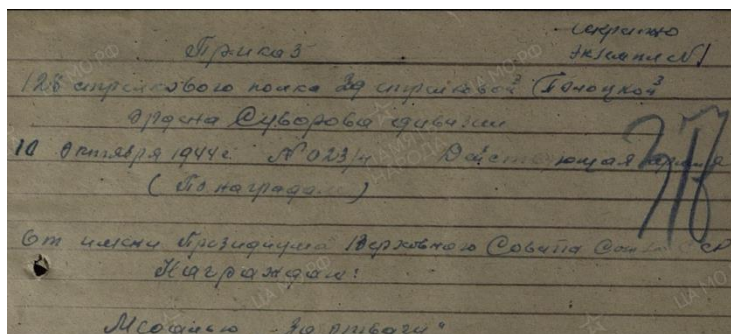 секретно
Приказ экземпл №1
126 стрелкового полка 3й стрелковой Полоцкой
ордена Суворова дивизии
10 октября 1944 г. №023/н Действующая армия
(По наградам)
От имени Президиума Верховного Совета Союза ССР
Награждаю:
Медалью "За отвагу"